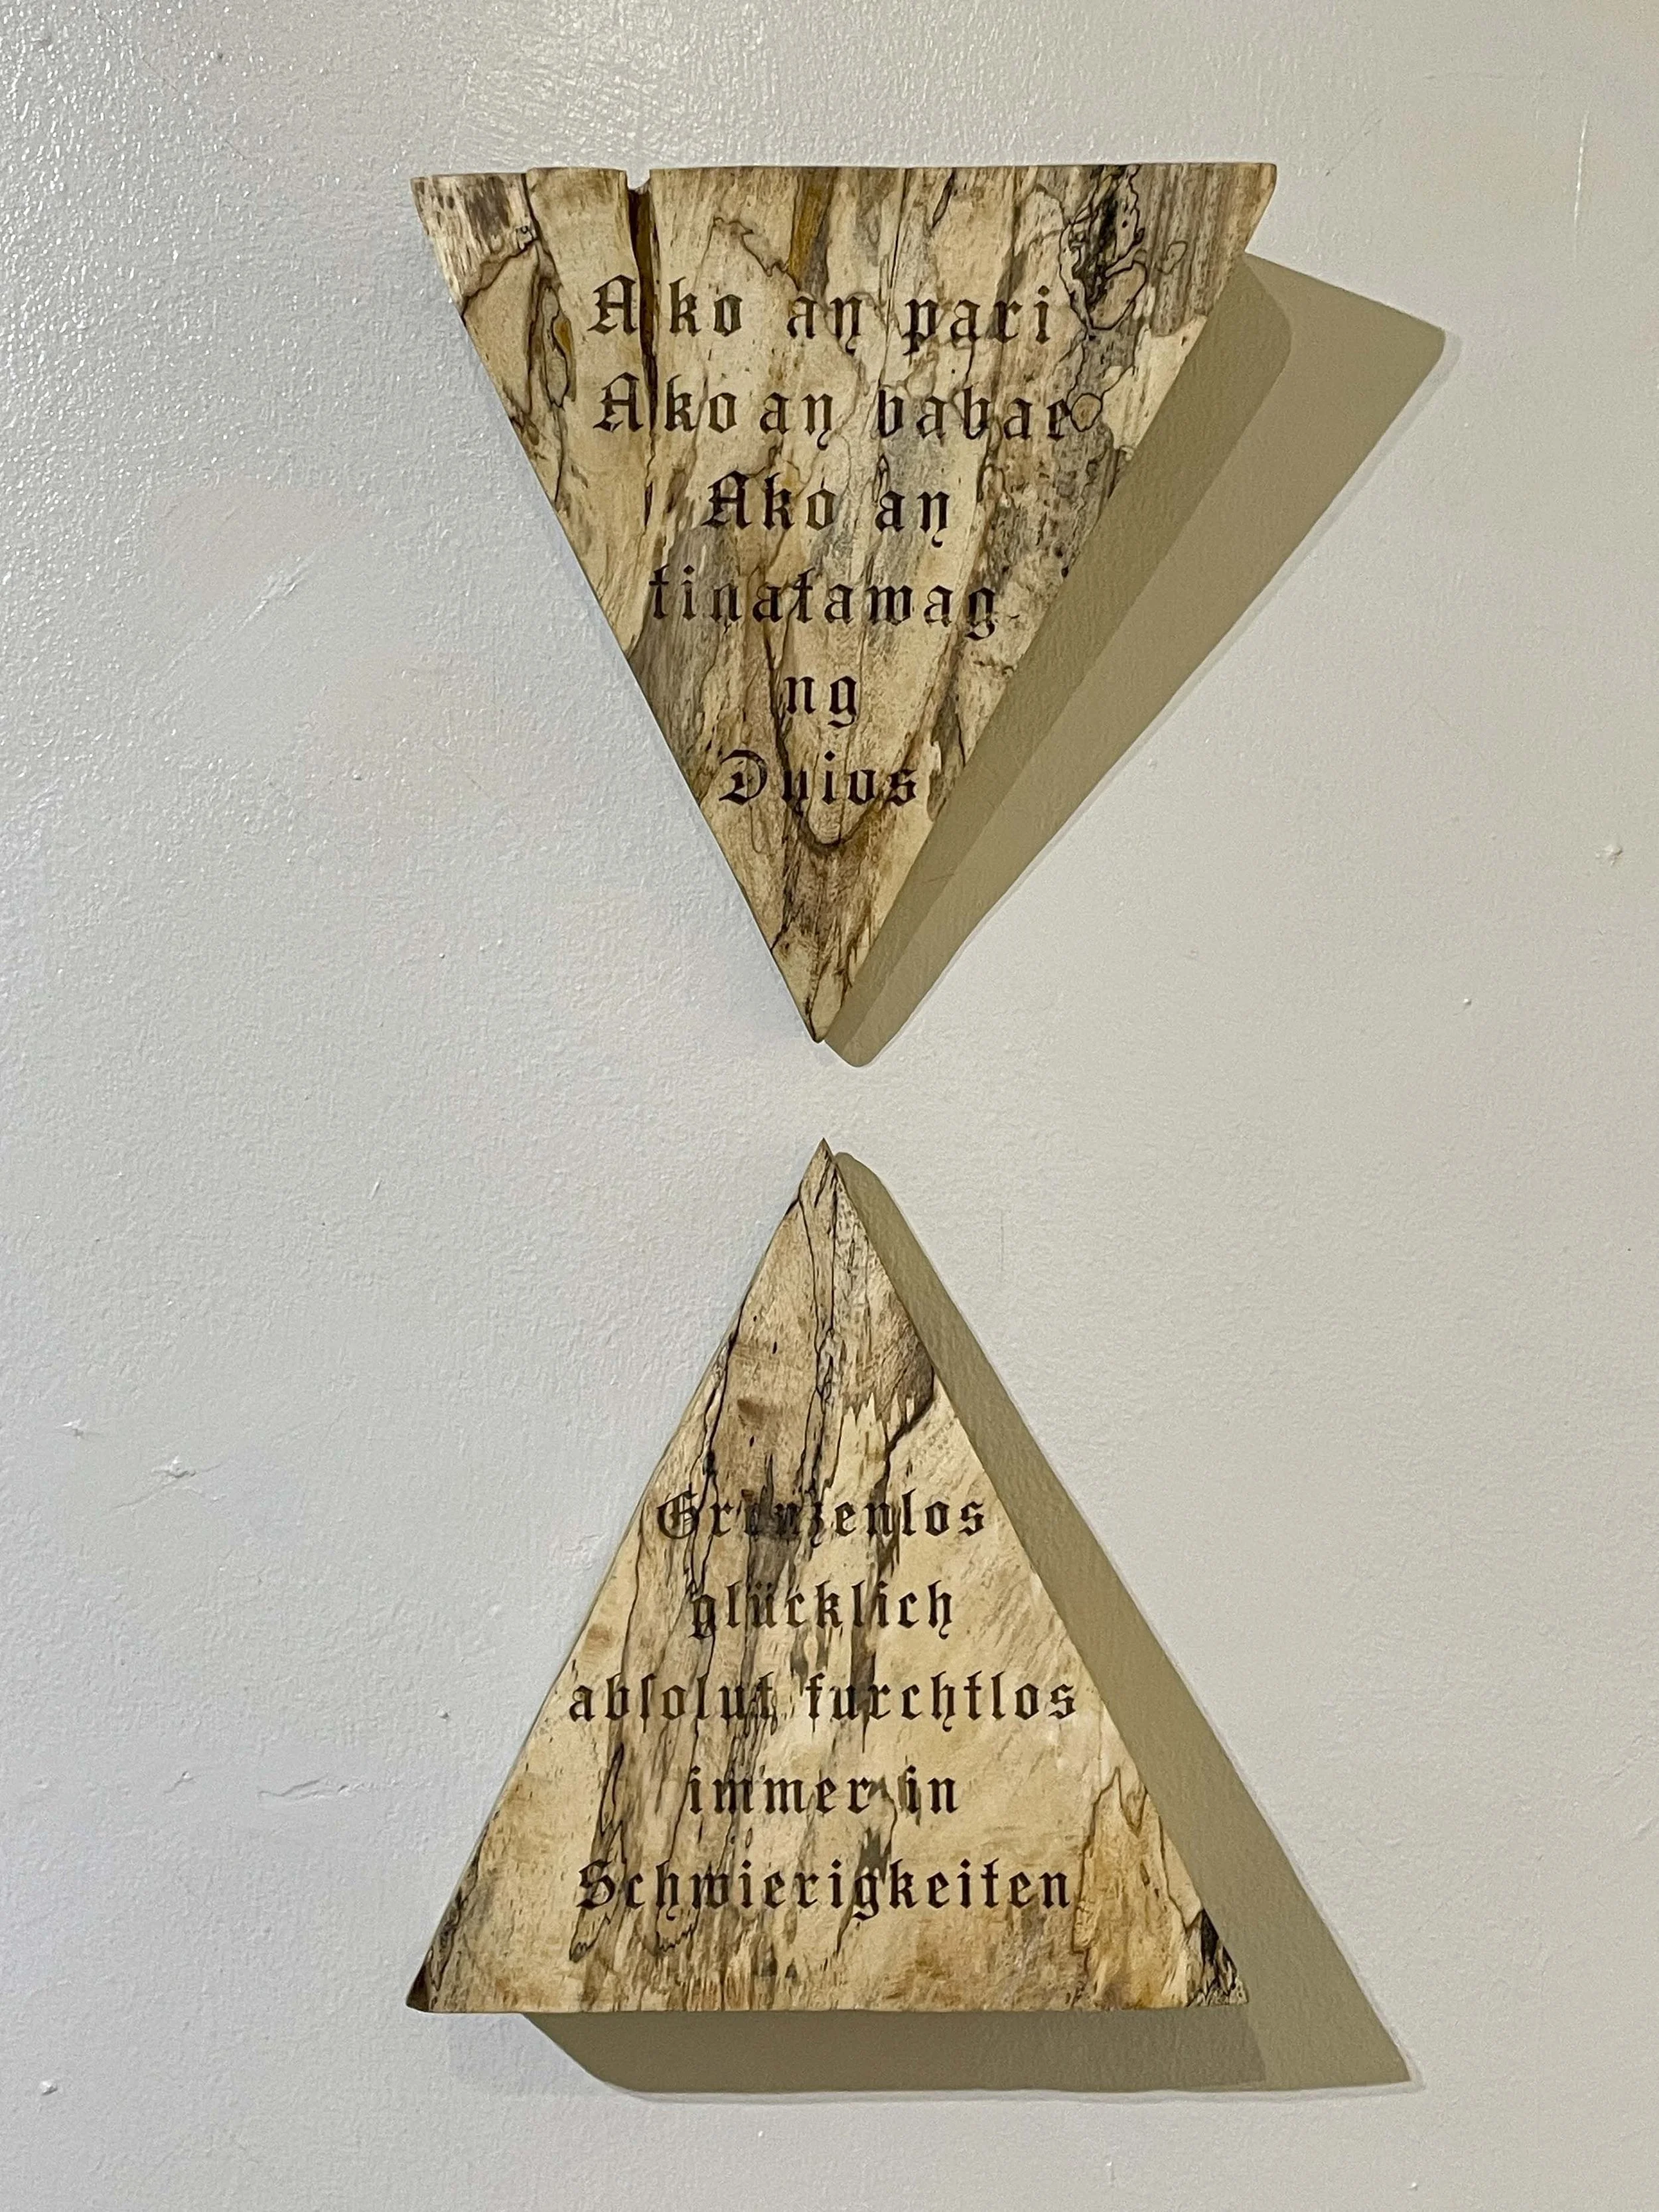 Ako an pari
Ako an babae
Ako an
tinatawag
ng
Dnios
Grenzenlos
glücklich
abſolut furchtlos
immer in
Schwierigkeiten